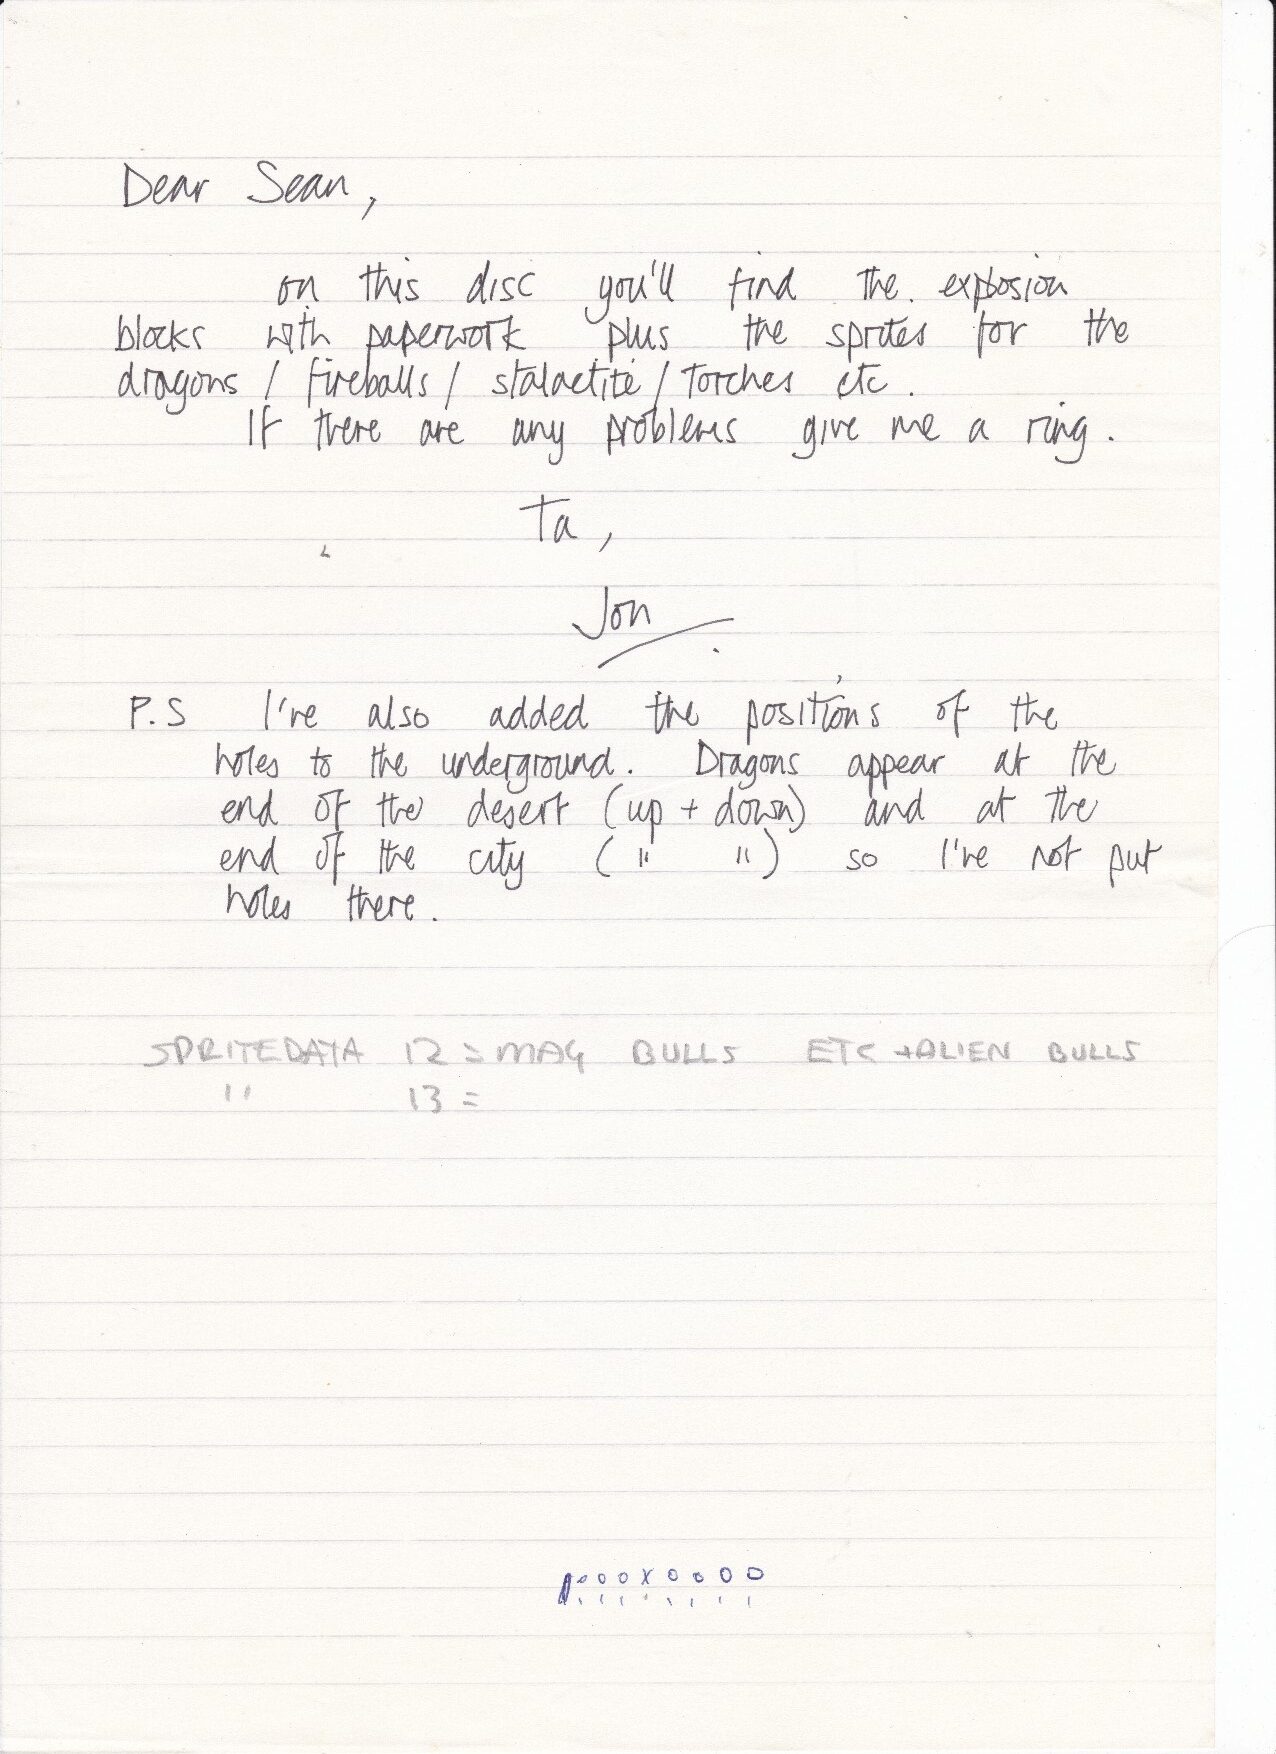 Dear Sean,
on this disc you'll find the explosion
blocks with paperwork plus the sprites for the
dragons / fireballs / stalactite / torches etc.
If there are any problems give me a ring.
Ta,
Jon
P.S I've also added the positions of the
holes to the underground. Dragons appear at the
end of the desert (up + down) and at the
end of the city (" ") so I've not put
holes there.
SPRITEDATA 12 = MAG BULLS ETC + ALIEN BULLS
" 13 =